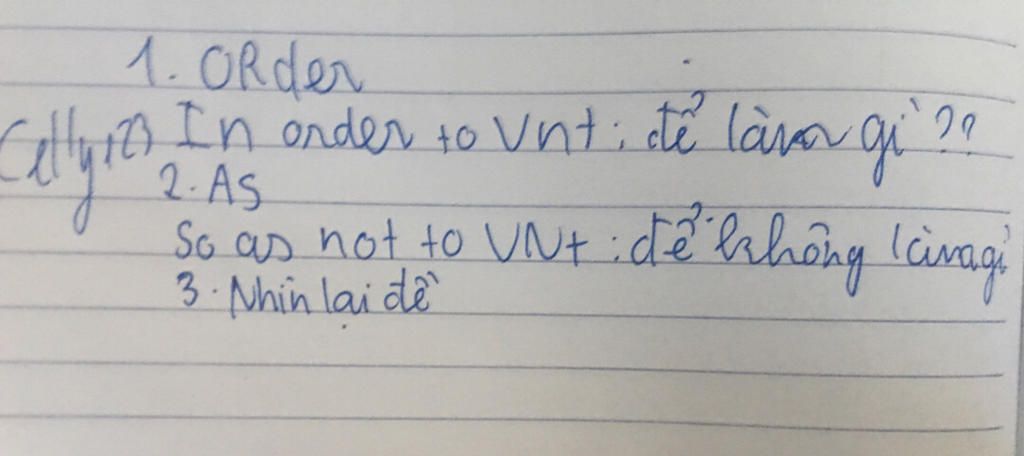 1. ORder
In order to Vnt : để làm gì ??
2. As
So as not to VNt : để không làm gì
3. Nhìn lại đề